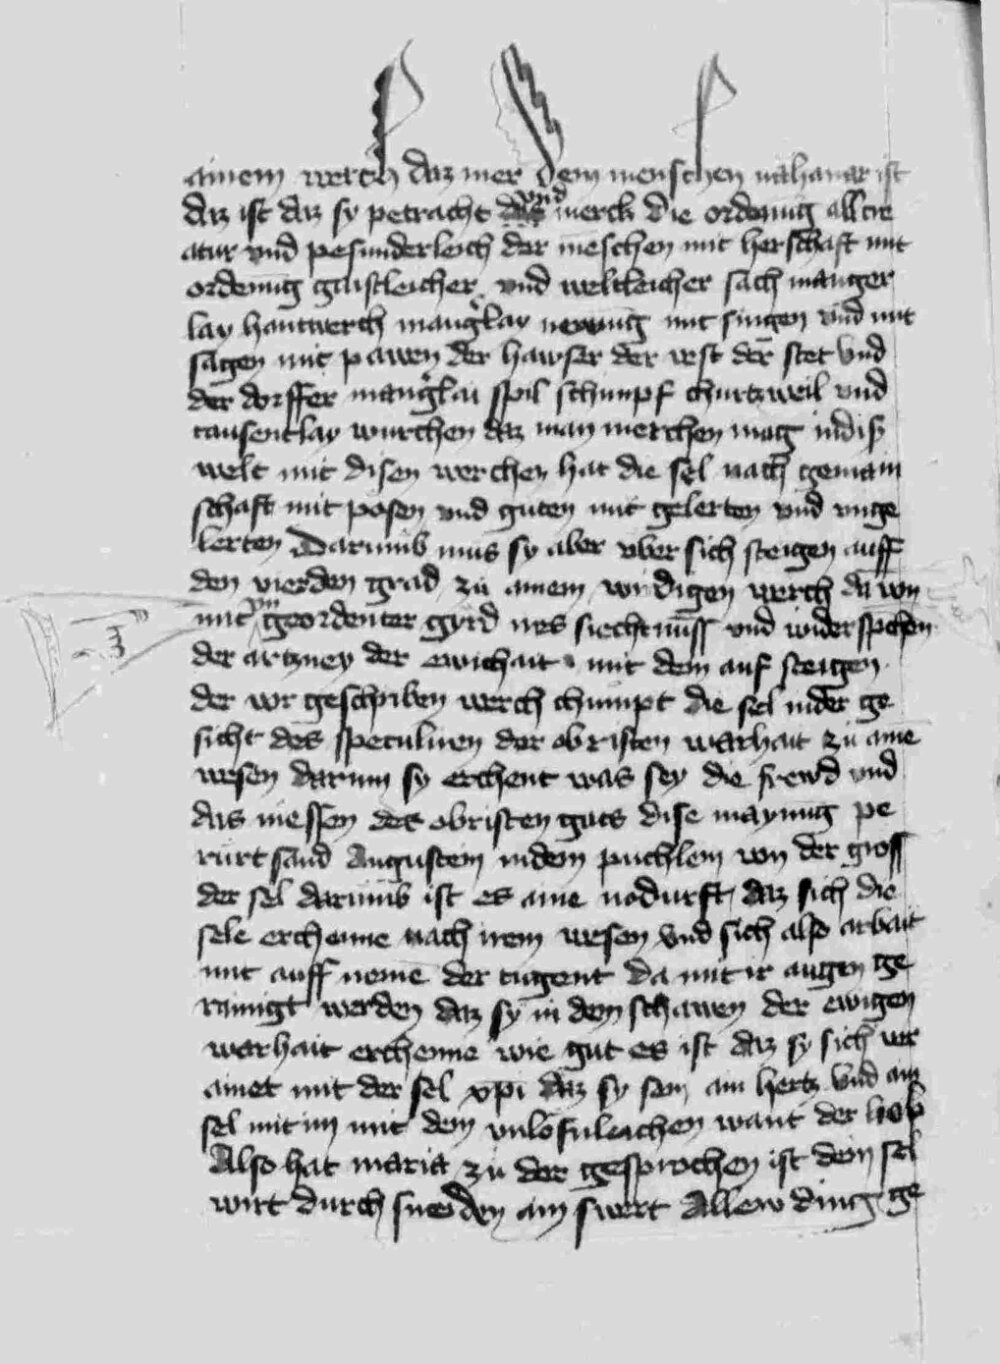 ainem werch daz mer dem menschen nahanar ist
daz ist daz sy petracht vnd merck die ordenūg all cre
atur vnd pesunderleich der mēschen mit herschaft mit
ordenūg gaistleicher vnd weltleicher sach manger
lay hantwerch mangˀlay mit singen vnd mit
sagen mit pawen der hawser der vest der stet vnd
der dorffer mangˀlai spil schimpf churtzweil vnd
tausentlay wurchen daz man merchen mag in diser
welt mit disen werchen hat die sel nach gemain
schaft mit posen vnd guten mit gelerten vnd unge
lerten Darumb mus sy aber vber sich steigen auff
den vierden grad zu ainem wirdigen werch da von
mit vngeordenter gyrd irs siechnuss vnd widersprechen
der artzney der ewichait mit dem auf steigen
der vor geschriben werch chumpt die sel in der ge
sicht des speculiren der obristen warhait zu ainē
wesen darinn sy erchent was sey die frewd vnd
das niessen des obristen guts dise maynūg pe
rurt sand Augustein in dem puchlein von der gross
der sel darumb ist es aine nodurft daz sich die
sele erchenne nach irem wesen vnd sich also arbait
mit auff nemē der tugent da mit ir augen ge
rainigt werden daz sy in dem schawen der ewigen
warhait erchenne wie gut es ist daz sy sich ver
ainet mit der sel xpi daz sy sein ain hertz vnd ain
sel mit im mit dem vnlosūleichen pant der lieb
Also hat maria zu der gesprochen ist dein sel
wirt durch sneiden ain swert Allew ding ge